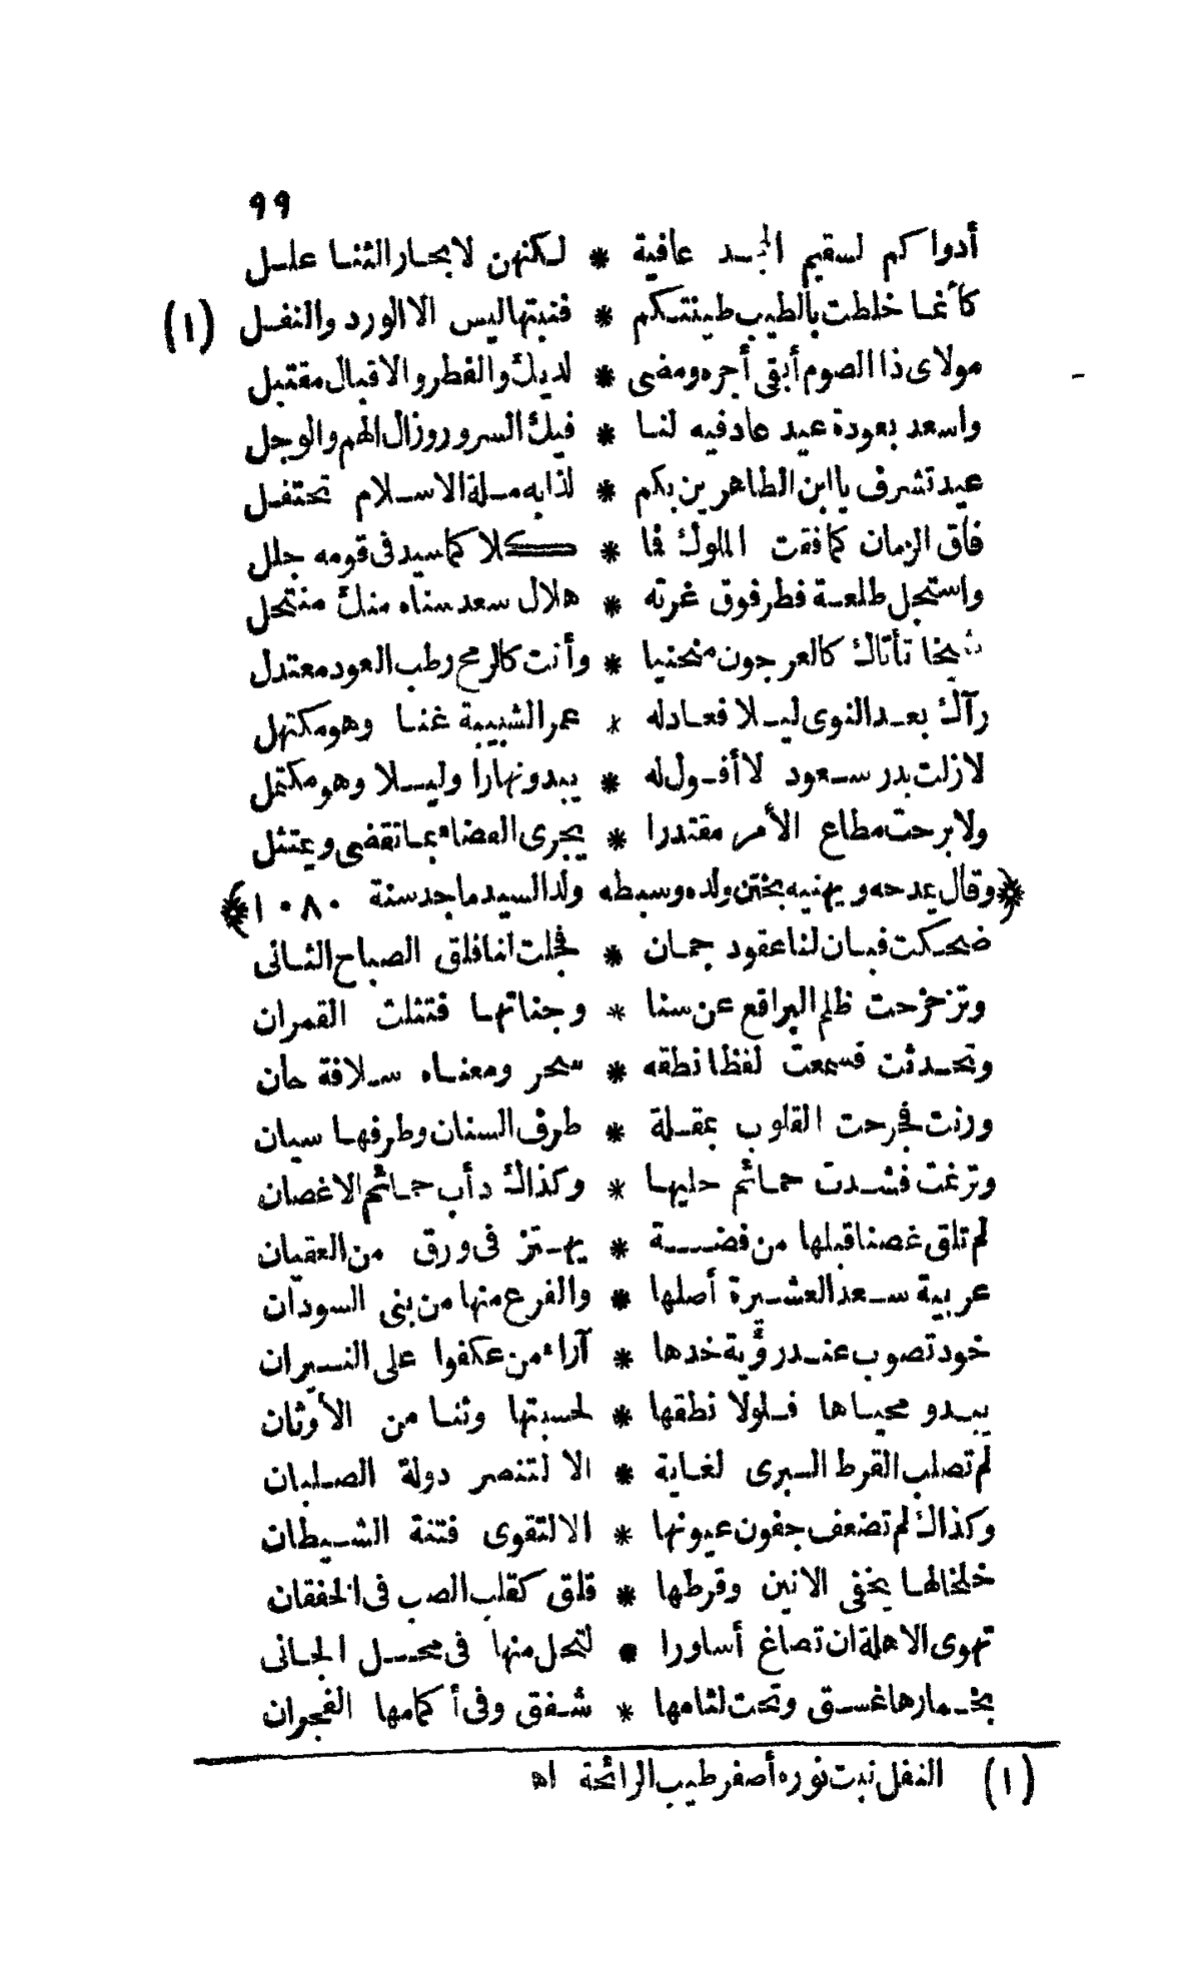 ٩٩
أدواكم لسقيم المجد عافية * لكنهن لابحار الثنا علل
كأنما خلطت بالطيب طينتكم * فنبتها ليس الا الورد والنفل (١)
مولاى ذا الصوم أبقى أجره ومضى * لديك والفطر والاقبال مقتبل
واسعد بعودة عيد عاد فيه لنا * فيك السرور وزال الهم والوجل
عيد تشرف يا ابن الطاهرين بكم * لذا به ملة الاسلام تحتفل
فاق الزمان كما فقت الملوك فما * كلا كما سيد فى قومه جلل
واستجل طلعة فطر فوق غرته * هلال سعد سناه منك منتحل
شيخا تأتاك كالعرجون منحنيا * وأنت كالرمح رطب العود معتدل
رآك بعد النوى ليلا فعادله * عمر الشبيبة غنا وهو مكتهل
لازلت بدر سعود لا أفول له * يبدو نهارا وليلا وهو مكتمل
ولا برحت مطاع الأمر مقتدرا * يجرى القضاء بما تقضى ويمتثل
﴿وقال يمدحه ويهنيه بختن ولده وسبطه ولد السيد ماجد سنة ١٠٨٠﴾
ضحكت فبان لنا عقود جمان * فجلت لنا فلق الصباح الثانى
وتزحزحت ظلم البراقع عن سنا * وجناتها فتثلث القمران
وتحدثت فسمعت لفظا نطقه * سحر ومعناه سلافة حان
ورنت فجرحت القلوب بمقلة * طرف السنان وطرفها سيان
وترنمت فشدت حمائم حليها * وكذاك دأب حمائم الاغصان
لم تلق غصنا قبلها من فضة * يهتز فى ورق من العقيان
عربية سعد العشيرة أصلها * والفرع منها من بنى السودان
خود تصوب عند رؤية خدها * آراء من عكفوا على النيران
يبدو محياها فلولا نطقها * لحسبتها وثنا من الأوثان
لم تصلب القرط البرى لغاية * الا لتنصر دولة الصلبان
وكذاك لم تضعف جفون عيونها * الا لتقوى فتنة الشيطان
خلخالها يخفى الانين وقرطها * قلق كقلب الصب فى الخفقان
تهوى الاهلة ان تصاغ أساورا * لتحل منها فى محل الجانى
بخمارها غسق وتحت لثامها * شفق وفى أكمامها الفجران
(١) النفل نبت نوره أصفر طيب الرائحة اه